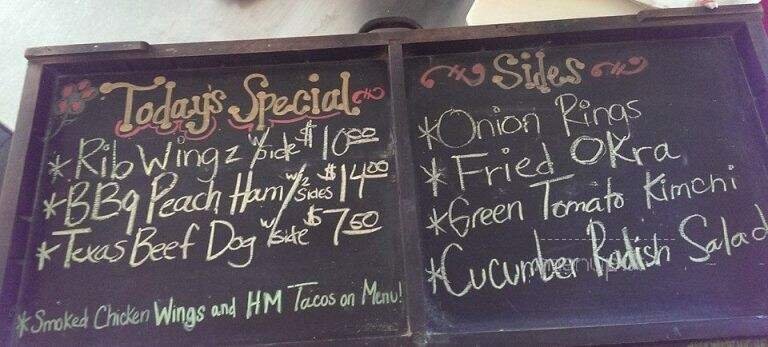 Today's Special
* Rib Wingz w/side $10.00
* BBq Peach Ham w/2 sides $14.00
* Texas Beef Dog w/side $7.50
* Smoked Chicken Wings and HM Tacos on Menu!
Sides
* Onion Rings
* Fried OKra
* Green Tomato Kimchi
* Cucumber Radish Salad